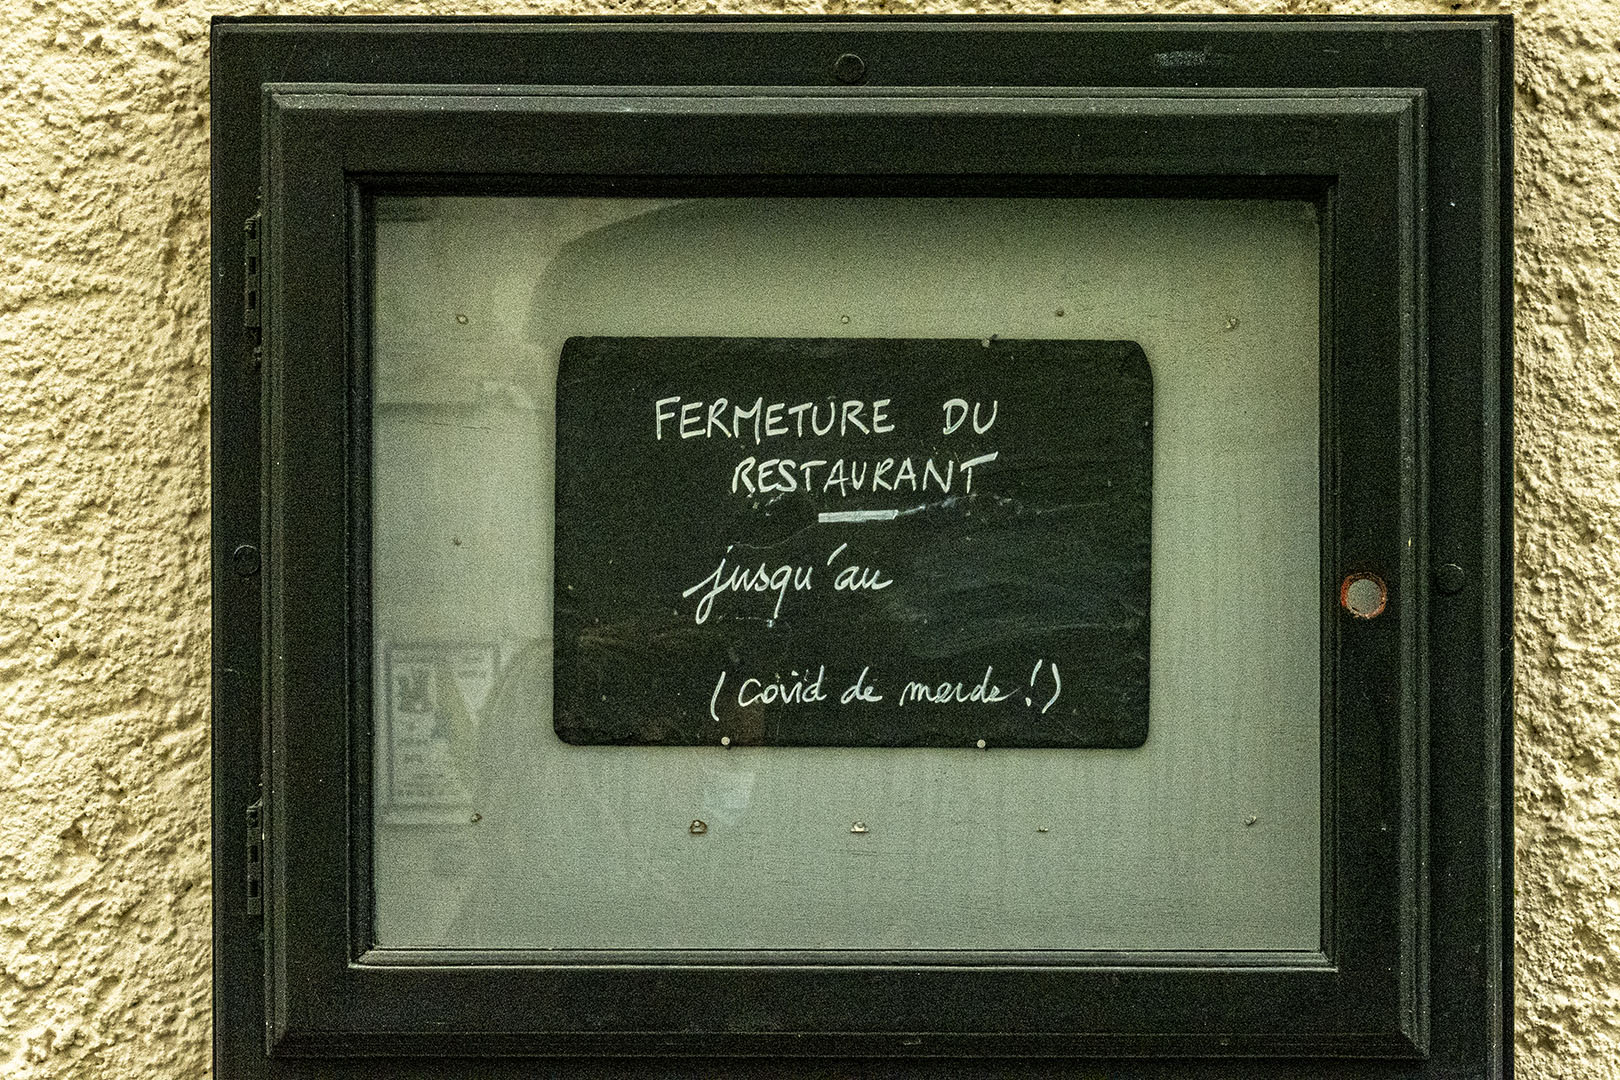 FERMETURE DU
RESTAURANT
jusqu'au
(Covid de merde !)